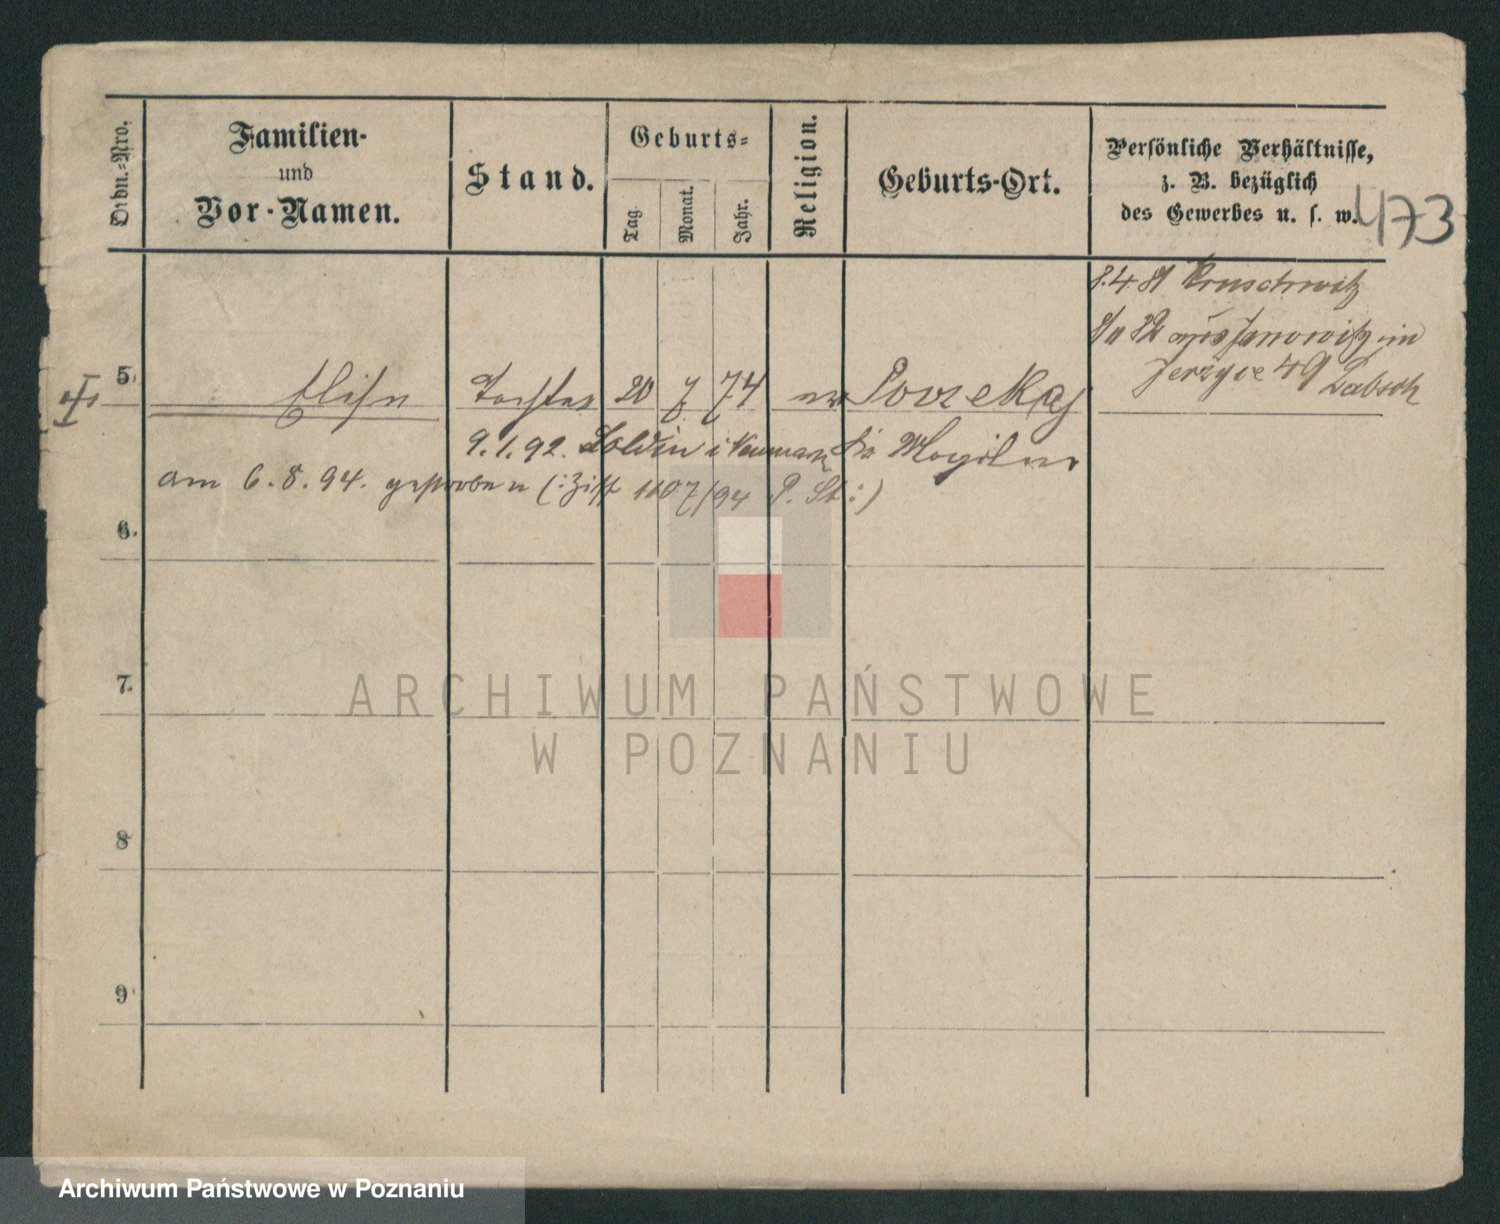 Ordn.-Nro.
Familien-
und
Vor-Namen.
Stand.
Geburts-
Tag.
Monat.
Jahr.
Religion.
Geburts-Ort.
Persönliche Verhältnisse,
z. B. bezüglich
des Gewerbes u. s. w.
473
8.4.81 Kruschwitz
82 aus Janowitz in
Jerzyce 49
5.
Elise Tochter 20 7 74
9.1.92. Soldin i Neumark Mogilno
am 6.8.94. gestorben (: Ziff 1107/94 P. St :)
6.
7.
8
9
ARCHIWUM PAŃSTWOWE
W POZNANIU
Archiwum Państwowe w Poznaniu